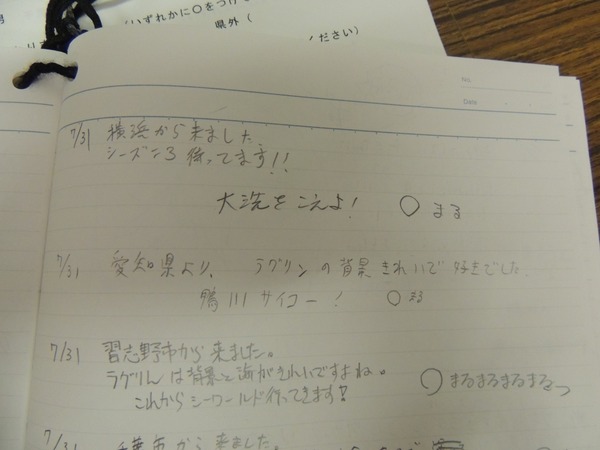 (いずれかに○をつけて
県外(
ください)
No.
Date
7/31 横浜から来ました
シーズン3 待ってます!!
大洗をこえよ! ○ まる
7/31 愛知県より、 ラグリンの背景きれいで好きでした
鴨川サイコー! ○ まる
7/31 習志野市から来ました。
ラグりんは背景と海がきれいですよね。
これからシーワールド行ってきます! ○まるまるまるまるっ
7/31 千葉市から来ました。